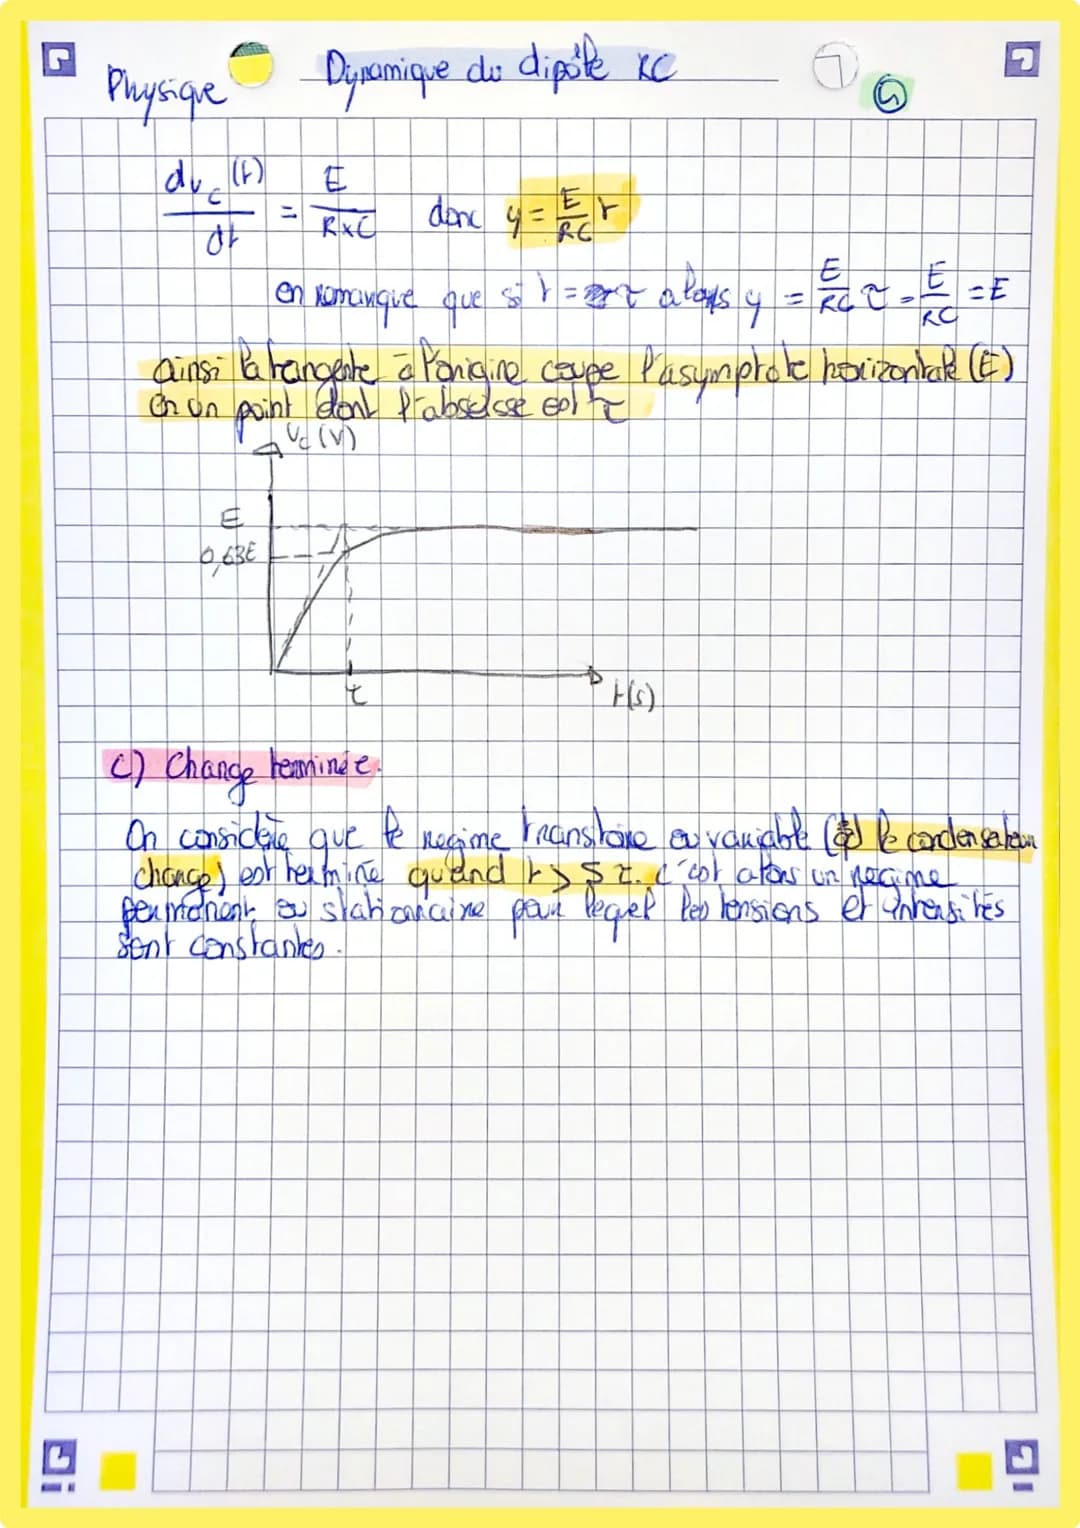 Physique
Dynamique du dipôle RC
5
du_c(t)/dt = E/R×C donc y = E/RC t
on remarque que si t = τ alors y = E/RC τ = E/RC = E
ainsi la tangente à l'origine coupe l'asymptote horizontale (E)
en un point dont l'abscisse est τ
U_c (V)
E
0,63E
τ
t(s)
c) Charge terminée.
On considère que le régime transitoire ou variable ( le condensateur
charge) est terminé quand t > 5 τ. c'est alors un régime
permanent ou stationnaire pour lequel les tensions et intensités
sont constantes.